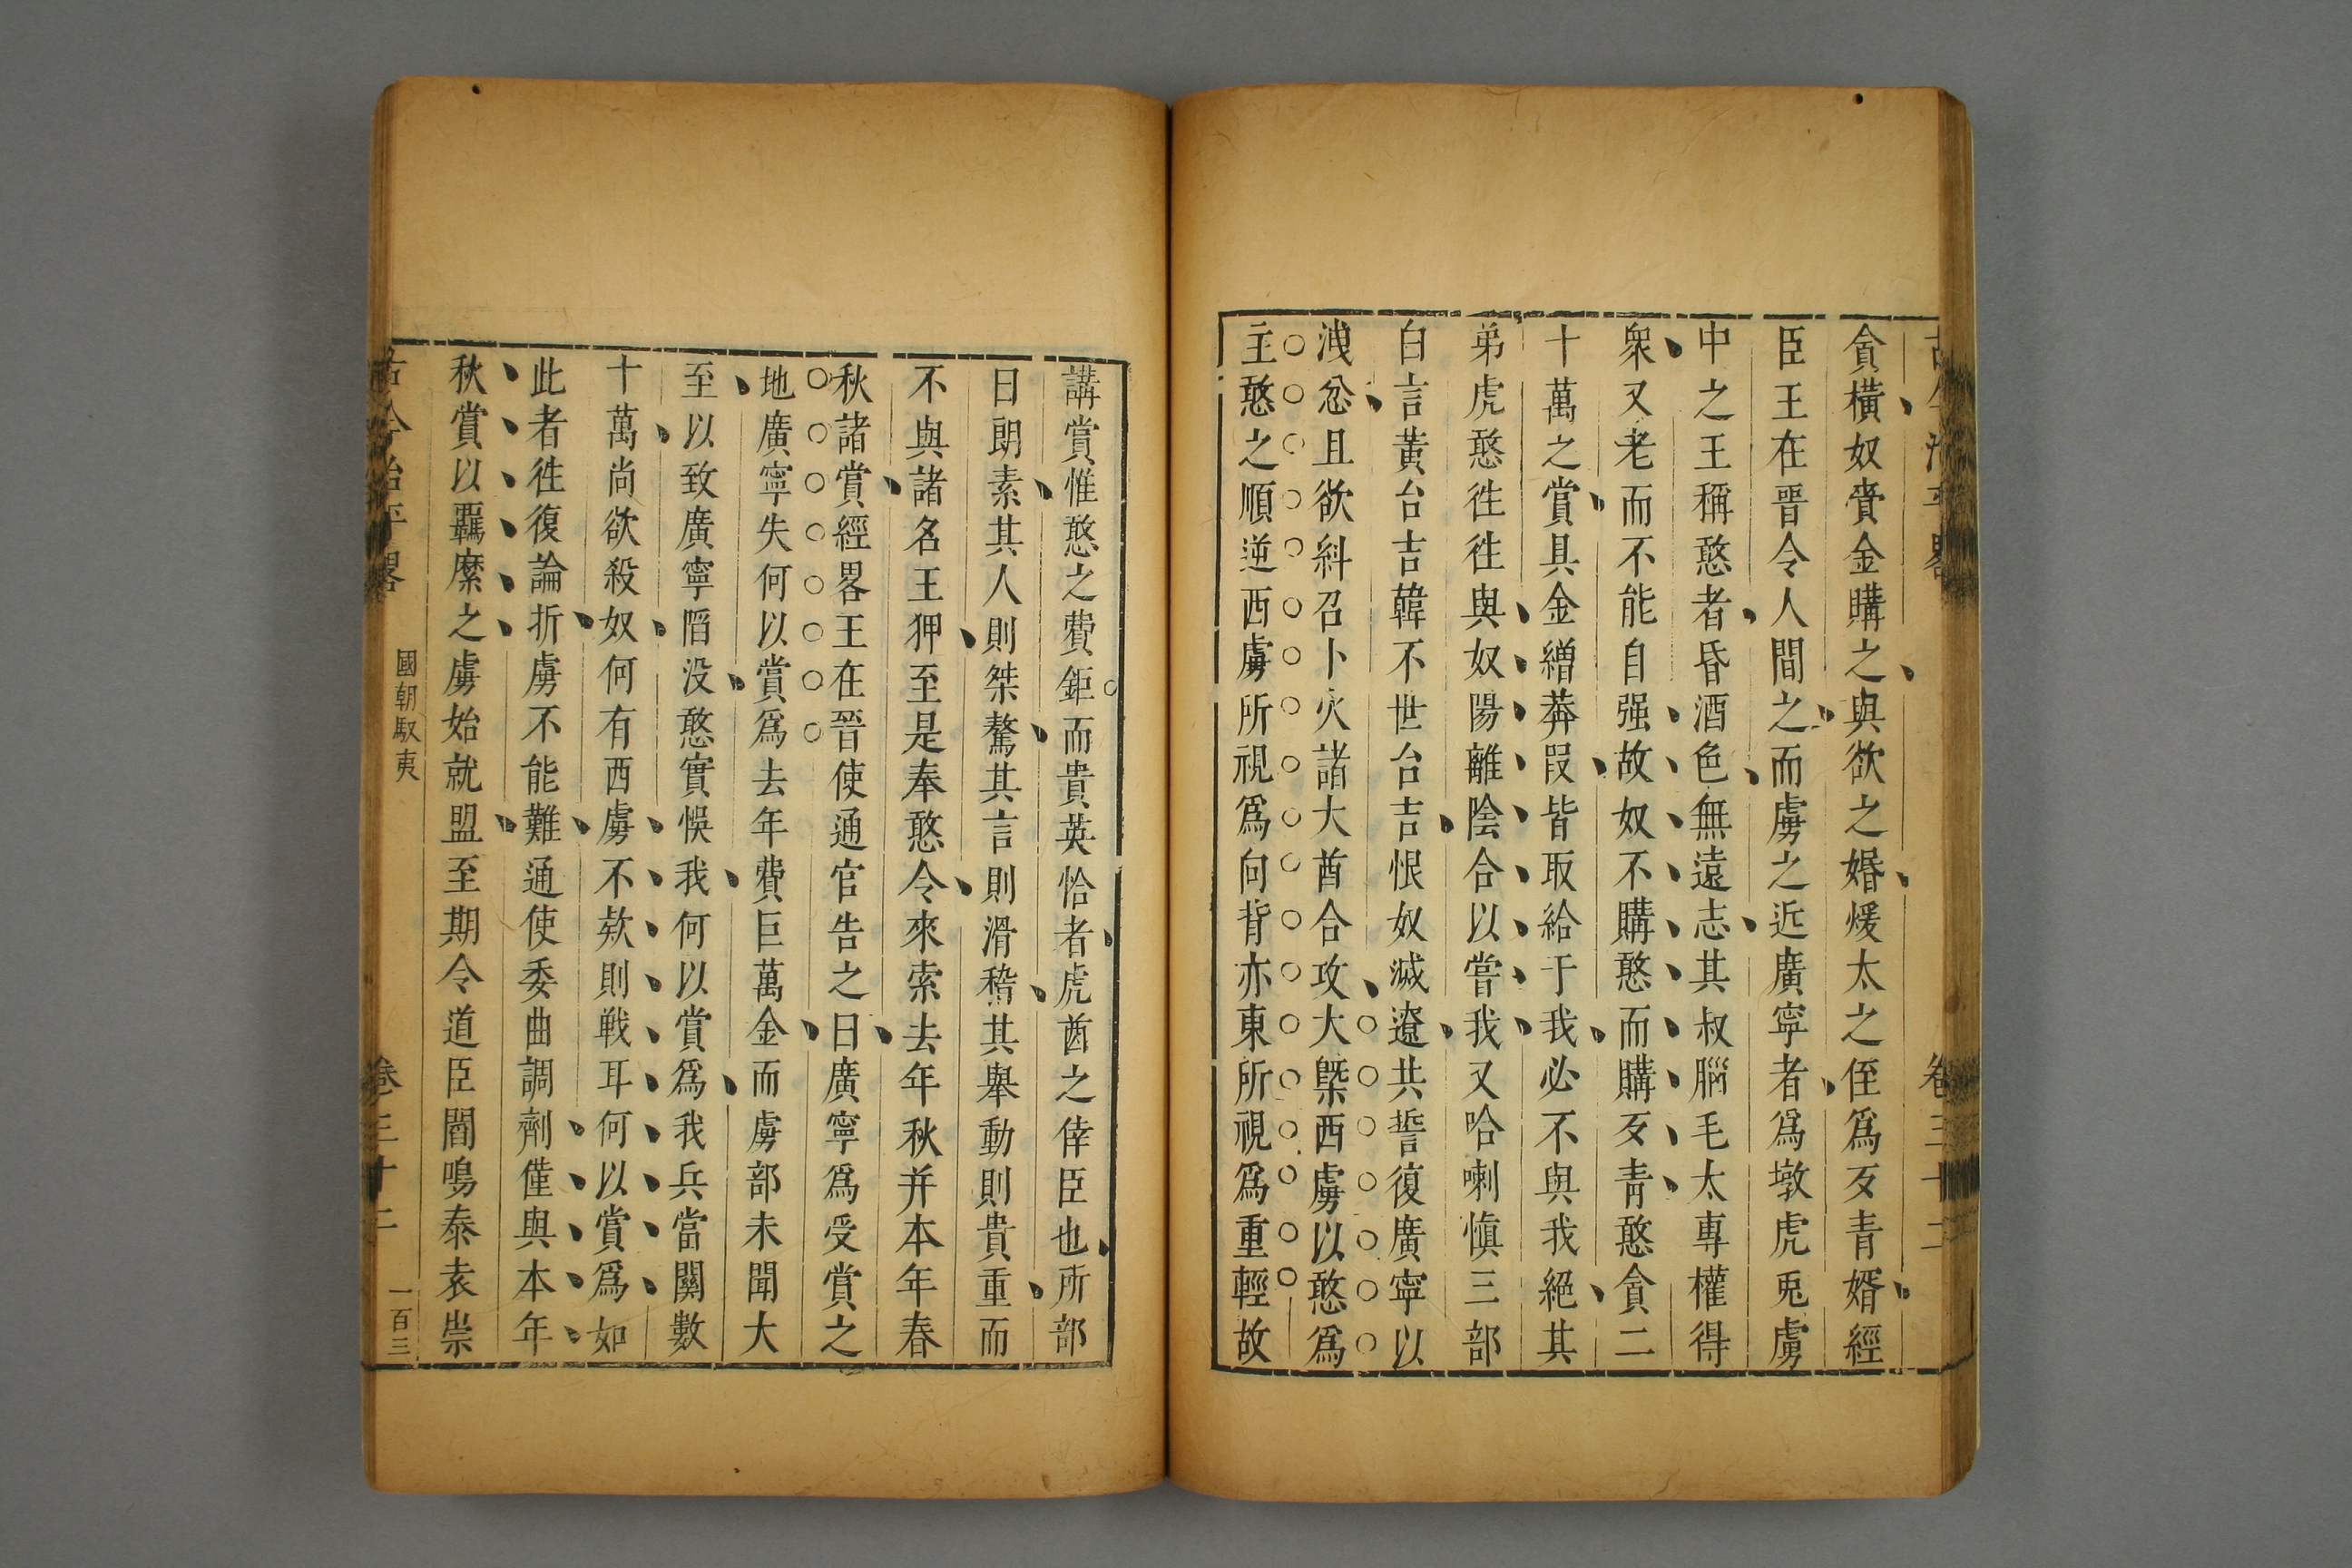 貪橫奴賫金購之與欲之婚煖太之侄爲歹青婿經
臣王在晉令人間之而虜之近廣寧者爲墩虎兎虜
中之王稱憨者昏酒色無遠志其叔腦毛太專權得
衆又老而不能自强故奴不購憨而購歹青憨貪二
十萬之賞具金繒莽叚皆取給于我必不與我絕其
弟虎憨徃徃與奴陽離陰合以嘗我又哈喇愼三部
白言黃台吉韓不世台吉恨奴滅遼共誓復廣寧以
洩忿且欲糾召卜火諸大酋合攻大槩西虜以憨爲
主憨之順逆西虜所視爲向背亦東所視爲重輕故
講賞惟憨之費鉅而貴英恰者虎酋之倖臣也所部
日朗素其人則桀驁其言則滑稽其舉動則貴重而
不與諸名王狎至是奉憨令來索去年秋并本年春
秋諸賞經畧王在晉使通官告之曰廣寧爲受賞之
地廣寧失何以賞爲去年費巨萬金而虜部未聞大
至以致廣寧陷没憨實悞我何以賞爲我兵當關數
十萬尚欲殺奴何有西虜不欵則戰耳何以賞爲如
此者徃復論折虜不能難通使委曲調劑僅與本年
秋賞以羈縻之虜始就盟至期令道臣閻鳴泰袁崇
古今治平畧
國朝馭夷
卷三十二
一百三